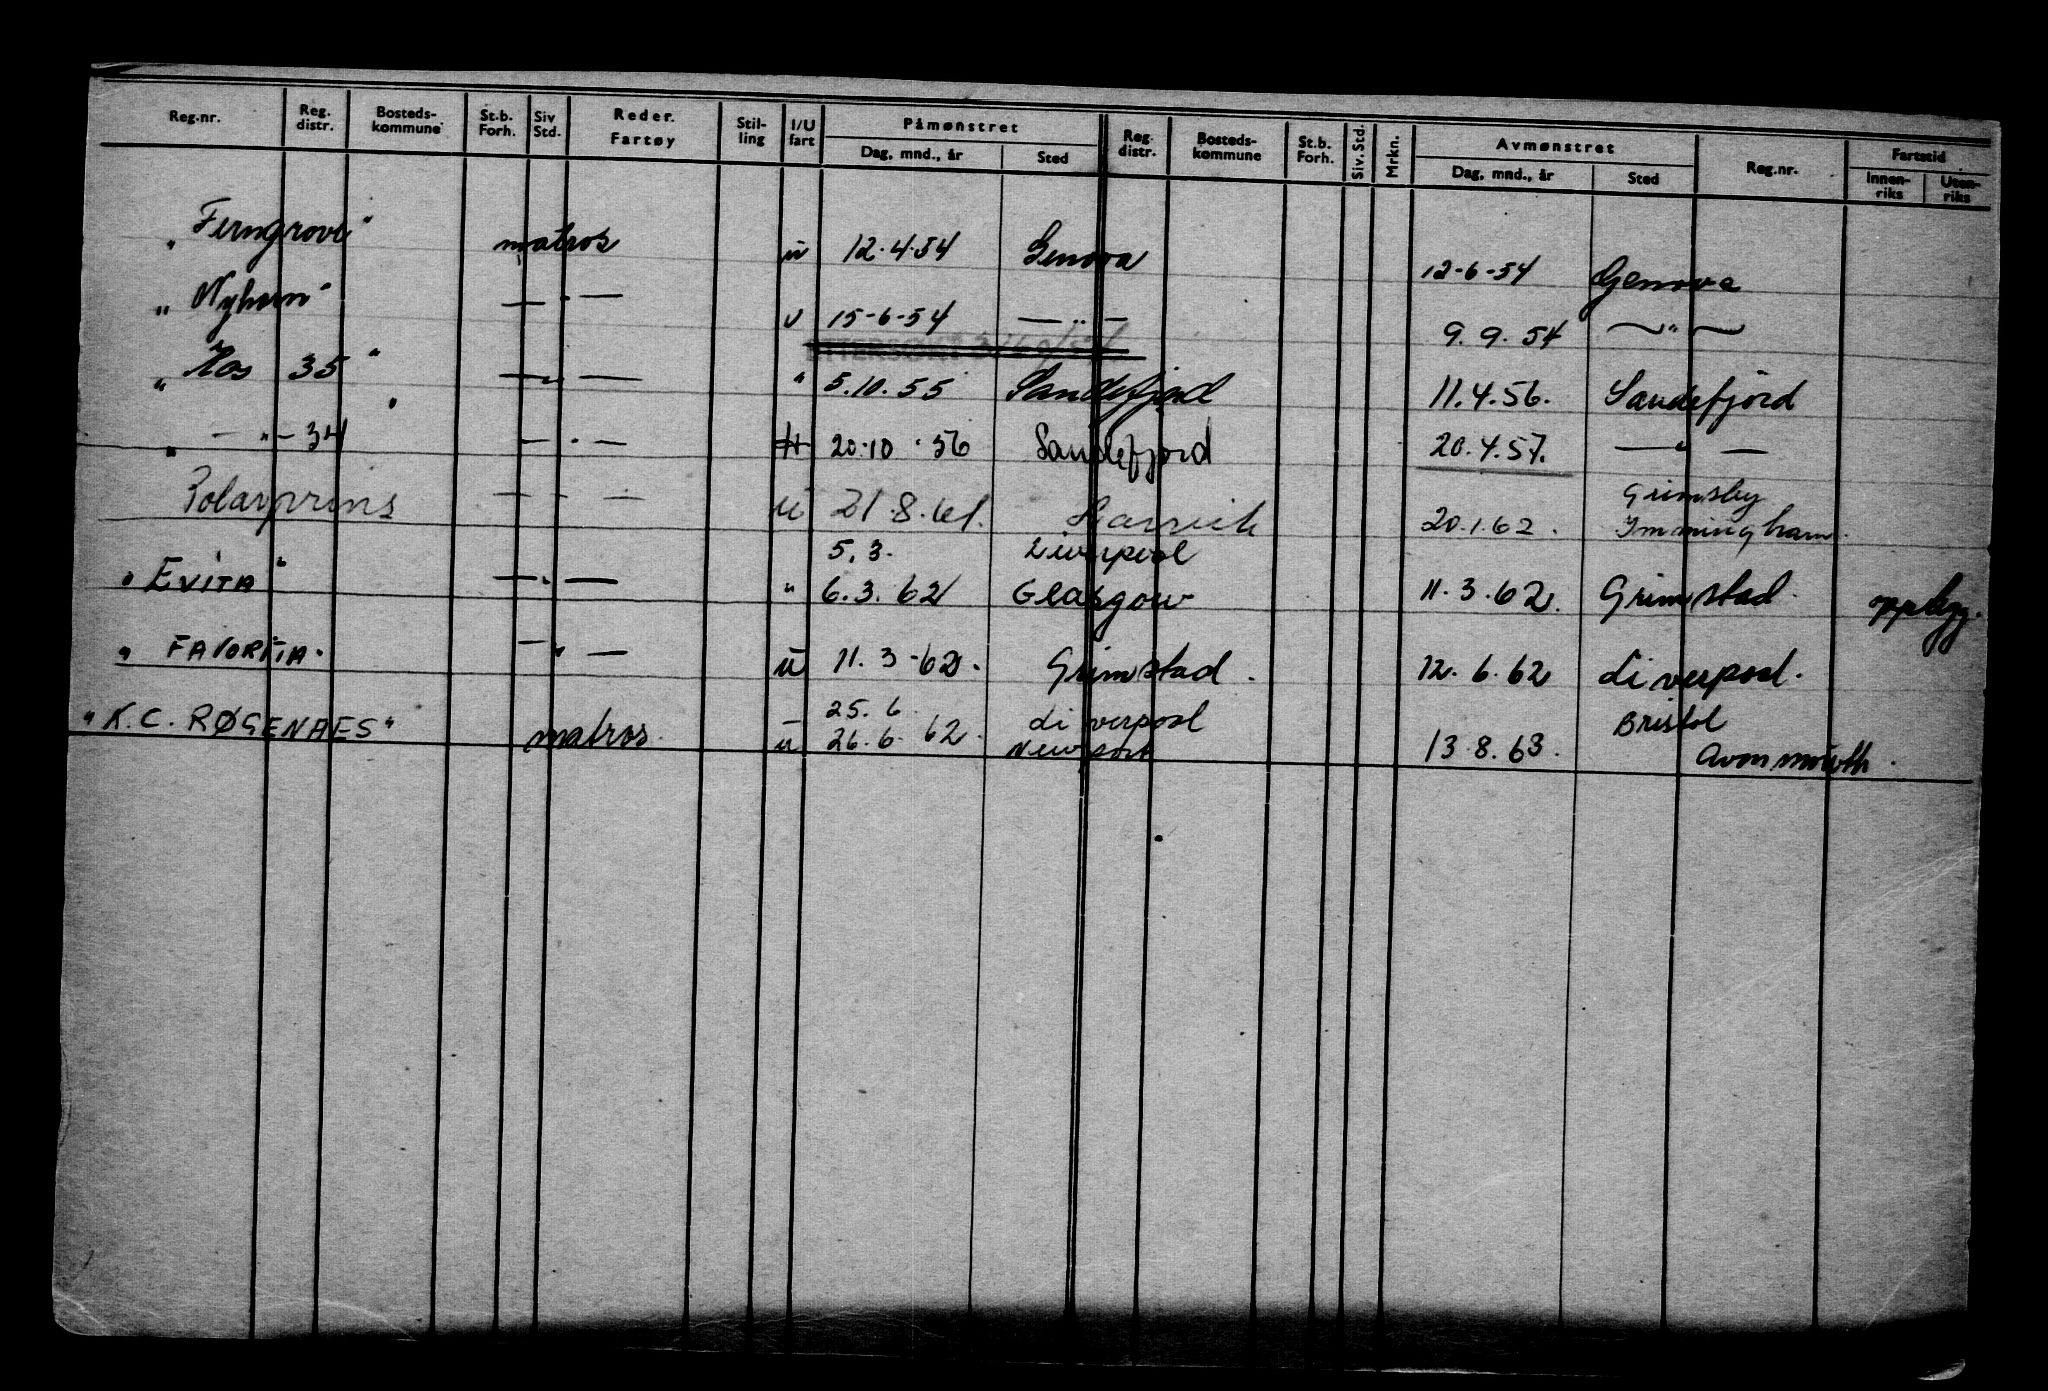 Reg.nr. Reg. distr. Bosteds-kommune St.b. Forh. Siv Std. Reder. Fartøy Stil-ling I/U fart Påmønstret Dag, mnd., år Sted Reg. distr. Bosteds-kommune St.b. Forh. Siv. Std. Mrkn. Avmønstret Dag, mnd., år Sted Reg.nr. Fartstid Innen-riks Uten-riks
" Ferngrove" matros ū 12.4.54 Genova 12-6-54 Genova
" Nyhorn" — " — u 15-6-54 — " — 9.9.54 — " —
" Kos 35 " — " — " 5.10.55 Sandefjord 11.4.56. Sandefjord
" — " — 34 " — " — 20.10.56 Sandefjord 20.4.57. — " —
Polarprins — " — ū 21.8.61. Harwich 20.1.62. Grimsby Immingham.
5.3. Liverpool
" EVITA " — " — " 6.3.62 Glasgow 11.3.62. Grimstad. opplegg.
" FAVORITA. — " — ū 11.3-62. Grimstad. 12.6.62 Liverpool.
25.6. Liverpool Bristol
" K.C. RØGENAES " matros. ū 26.6.62. Newport 13.8.63. Avonmouth.